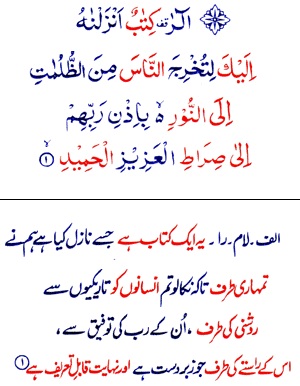 الٓرٰ ۟ كِتٰبٌ اَنْزَلْنٰهُ
اِلَيْكَ لِتُخْرِجَ النَّاسَ مِنَ الظُّلُمٰتِ
اِلَى النُّوْرِ ۙ۬ بِاِذْنِ رَبِّهِمْ
اِلٰى صِرَاطِ الْعَزِيْزِ الْحَمِيْدِ ۙ ۱
الف۔لام۔را۔ یہ ایک کتاب ہے جسے نازل کیا ہے ہم نے
تمہاری طرف تاکہ نکالو تم انسانوں کو تاریکیوں سے
روشنی کی طرف ، اُن کے رب کی توفیق سے ،
اس کے راستے کی طرف جو زبردست ہے اور نہایت قابلِ تعریف ہے ۱